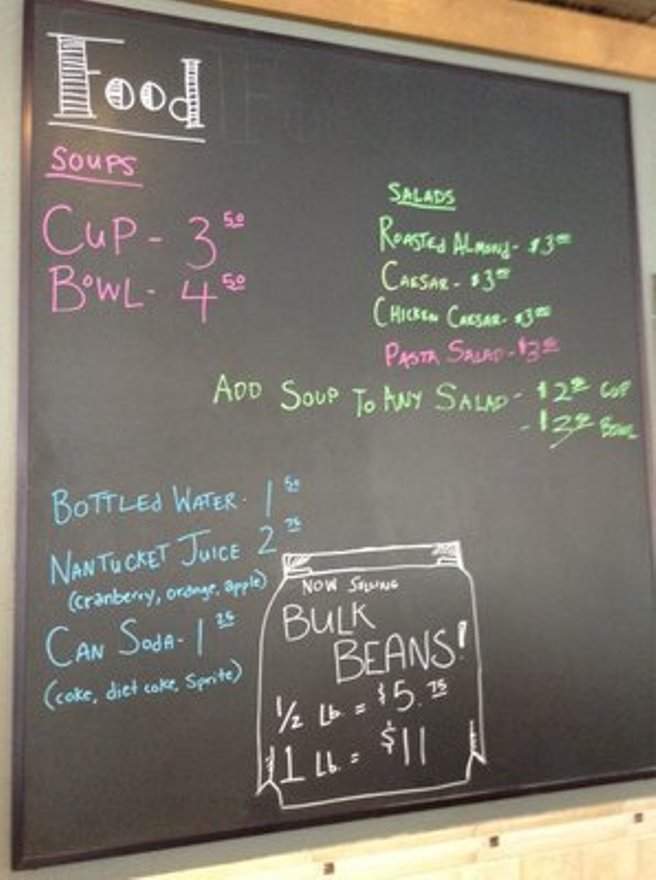 Food
SOUPS
CUP - 3 50
BOWL - 4 50
SALADS
ROASTED ALMOND - $3
CAESAR - $3
CHICKEN CAESAR - $3
PASTA SALAD - $3
ADD SOUP TO ANY SALAD - $2 CUP
- $3 BOWL
BOTTLED WATER - 1 50
NANTUCKET JUICE 2 75
(cranberry, orange, apple)
CAN SODA - 1 25
(coke, diet coke, Sprite)
NOW SELLING
BULK
BEANS!
1/2 Lb. = $5.75
1 Lb. = $11